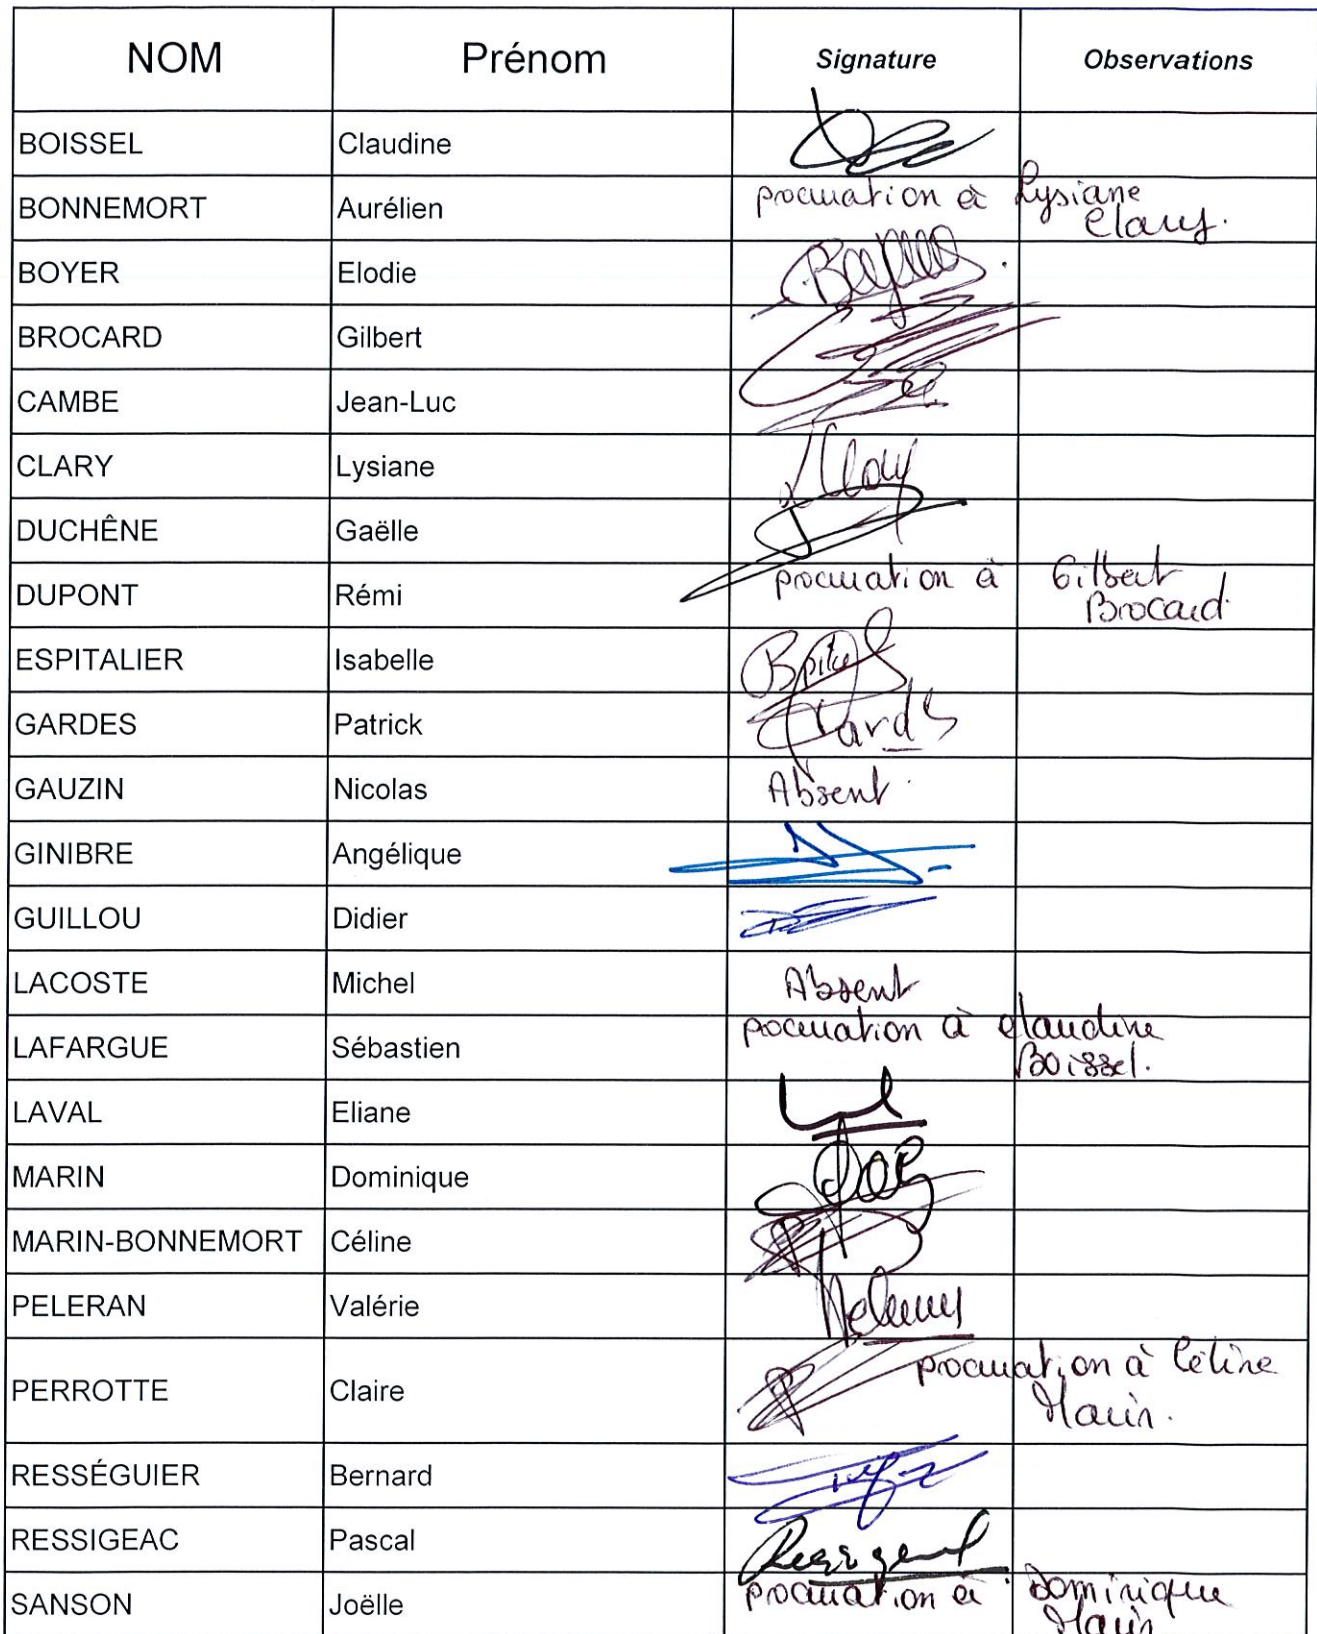 NOM Prénom Signature Observations
BOISSEL Claudine
BONNEMORT Aurélien procuration à Lysiane
Clary.
BOYER Elodie
BROCARD Gilbert
CAMBE Jean-Luc
CLARY Lysiane LClary
DUCHÊNE Gaëlle
DUPONT Rémi procuration à Gilbert
Brocard
ESPITALIER Isabelle
GARDES Patrick Gardes
GAUZIN Nicolas Absent.
GINIBRE Angélique
GUILLOU Didier
LACOSTE Michel Absent
LAFARGUE Sébastien procuration à Claudine
Boissel.
LAVAL Eliane
MARIN Dominique
MARIN-BONNEMORT Céline
PELERAN Valérie
PERROTTE Claire procuration à Céline
Marin.
RESSÉGUIER Bernard
RESSIGEAC Pascal
SANSON Joëlle procuration à Dominique
Marin